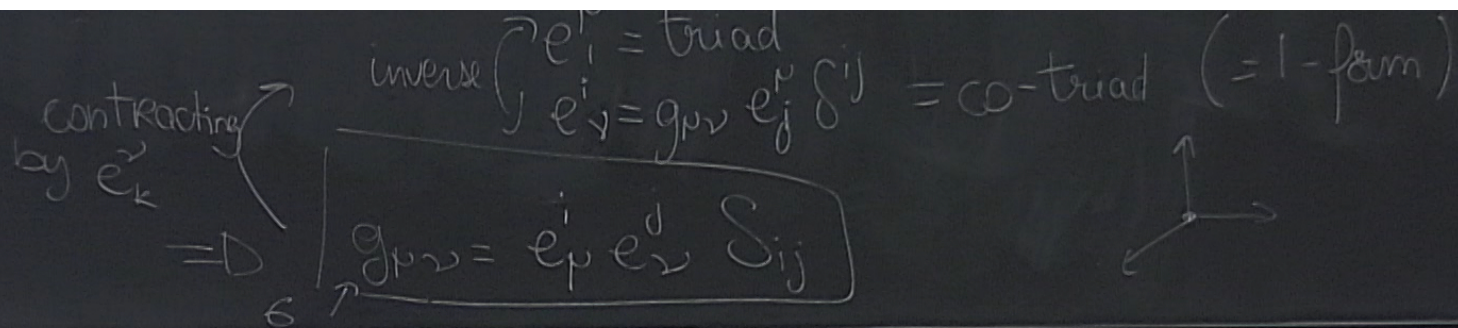 inverse e^μ_i = triad
e^i_ν = g_μν e^μ_j δ^ij = co-triad (= 1-form)
contracting
by e^ν_k
=> g_μν = e^i_μ e^j_ν δ_ij
6